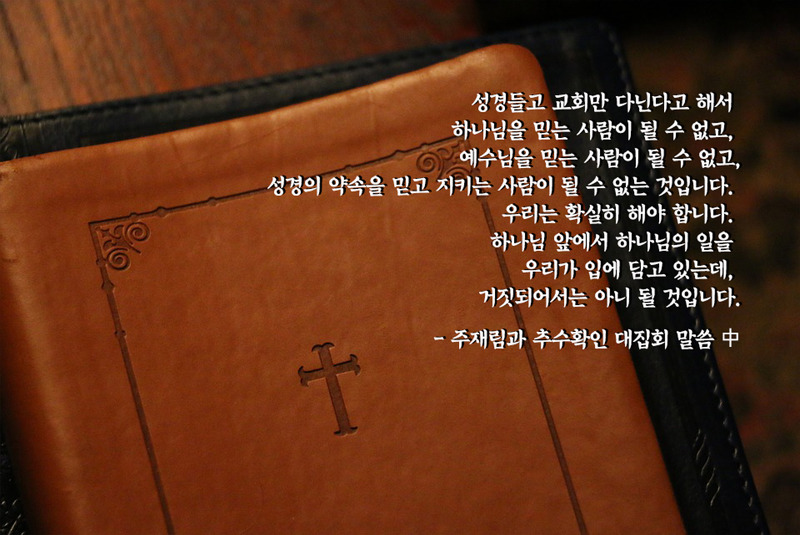 성경들고 교회만 다닌다고 해서
하나님을 믿는 사람이 될 수 없고,
예수님을 믿는 사람이 될 수 없고,
성경의 약속을 믿고 지키는 사람이 될 수 없는 것입니다.
우리는 확실히 해야 합니다.
하나님 앞에서 하나님의 일을
우리가 입에 담고 있는데,
거짓되어서는 아니 될 것입니다.
- 주재림과 추수확인 대집회 말씀 中